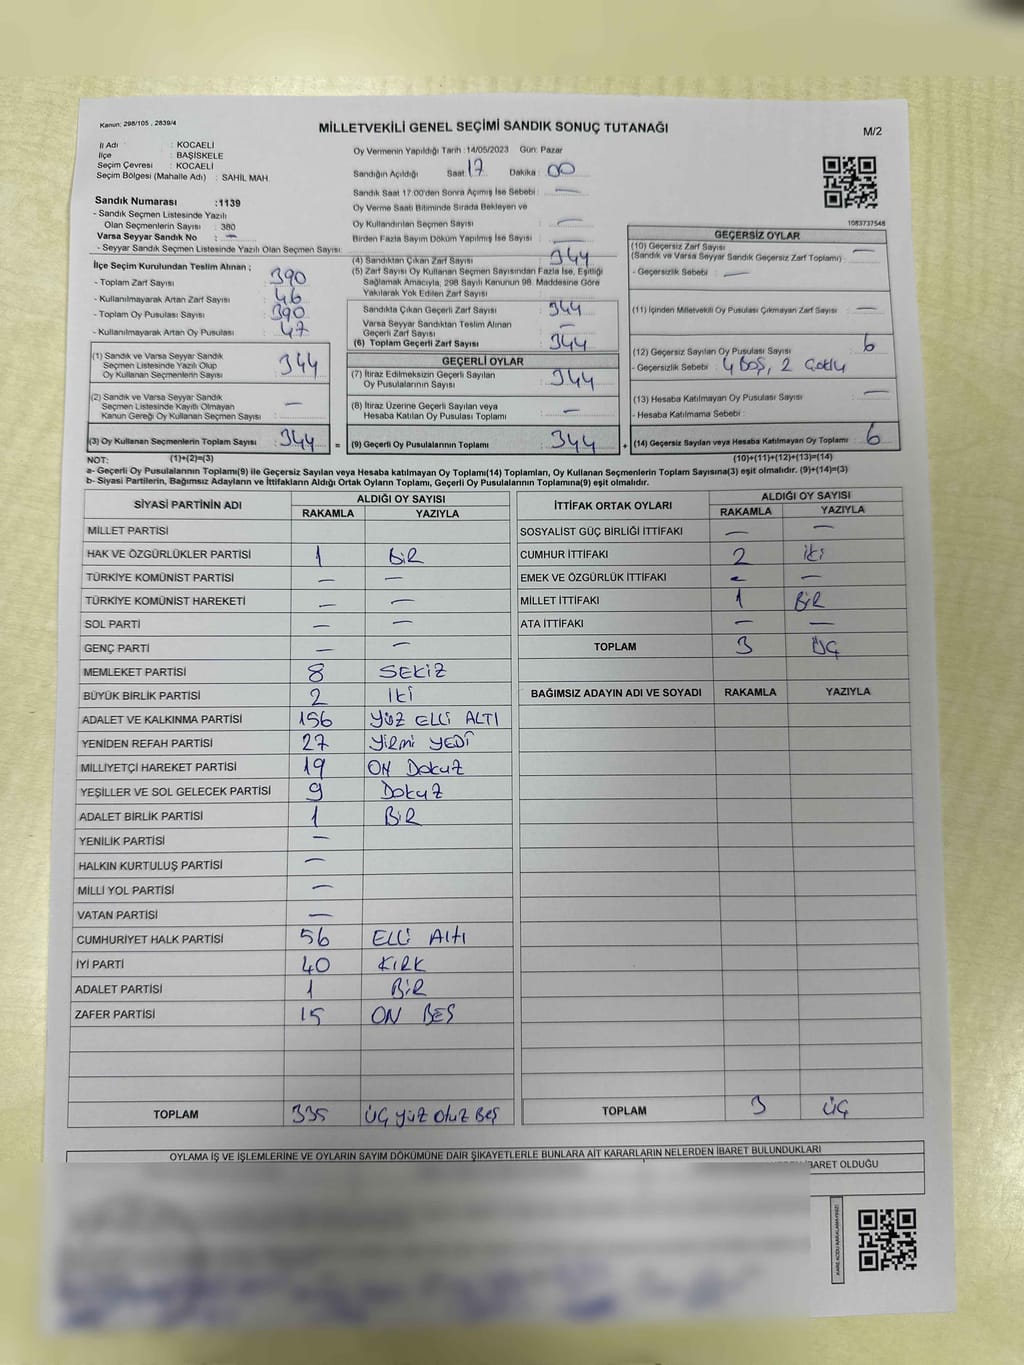 Kanun: 298/105 , 2839/4
MİLLETVEKİLİ GENEL SEÇİMİ SANDIK SONUÇ TUTANAĞI
M/2
İl Adı : KOCAELİ
İlçe : BAŞİSKELE
Seçim Çevresi : KOCAELİ
Seçim Bölgesi (Mahalle Adı) : SAHİL MAH.
Oy Vermenin Yapıldığı Tarih :14/05/2023 Gün: Pazar
Sandığın Açıldığı Saat 17 Dakika : 00
Sandık Saat 17:00'den Sonra Açımış İse Sebebi : —
Oy Verme Saati Bitiminde Sırada Bekleyen ve
Oy Kullandırılan Seçmen Sayısı : —
Birden Fazla Sayım Döküm Yapılmış İse Sayısı : —
Sandık Numarası :1139
- Sandık Seçmen Listesinde Yazılı
Olan Seçmenlerin Sayısı : 380
Varsa Seyyar Sandık No : —
- Seyyar Sandık Seçmen Listesinde Yazılı Olan Seçmen Sayısı:
İlçe Seçim Kurulundan Teslim Alınan ;
- Toplam Zarf Sayısı : 390
- Kullanılmayarak Artan Zarf Sayısı : 46
- Toplam Oy Pusulası Sayısı : 390
- Kullanılmayarak Artan Oy Pusulası : 47
(1) Sandık ve Varsa Seyyar Sandık
Seçmen Listesinde Yazılı Olup
Oy Kullanan Seçmenlerin Sayısı : 344
(2) Sandık ve Varsa Seyyar Sandık
Seçmen Listesinde Kayıtlı Olmayan
Kanun Gereği Oy Kullanan Seçmen Sayısı : —
(3) Oy Kullanan Seçmenlerin Toplam Sayısı : 344
(4) Sandıktan Çıkan Zarf Sayısı : 344
(5) Zarf Sayısı Oy Kullanan Seçmen Sayısından Fazla İse, Eşitliği
Sağlamak Amacıyla, 298 Sayılı Kanunun 98. Maddesine Göre
Yakılarak Yok Edilen Zarf Sayısı :
Sandıkta Çıkan Geçerli Zarf Sayısı : 344
Varsa Seyyar Sandıktan Teslim Alınan
Geçerli Zarf Sayısı : —
(6) Toplam Geçerli Zarf Sayısı : 344
GEÇERLİ OYLAR
(7) İtiraz Edilmeksizin Geçerli Sayılan
Oy Pusulalarının Sayısı : 344
(8) İtiraz Üzerine Geçerli Sayılan veya
Hesaba Katılan Oy Pusulası Toplamı : —
= (9) Geçerli Oy Pusulalarının Toplamı : 344
1083737548
GEÇERSİZ OYLAR
(10) Geçersiz Zarf Sayısı
(Sandık ve Varsa Seyyar Sandık Geçersiz Zarf Toplamı) : —
- Geçersizlik Sebebi : —
(11) İçinden Milletvekili Oy Pusulası Çıkmayan Zarf Sayısı : —
(12) Geçersiz Sayılan Oy Pusulası Sayısı : 6
- Geçersizlik Sebebi : 4 BOŞ, 2 çoklu
(13) Hesaba Katılmayan Oy Pusulası Sayısı : —
- Hesaba Katılmama Sebebi :
+ (14) Geçersiz Sayılan veya Hesaba Katılmayan Oy Toplamı : 6
NOT: (1)+(2)=(3)
(10)+(11)+(12)+(13)=(14)
a- Geçerli Oy Pusulalarının Toplamı(9) ile Geçersiz Sayılan veya Hesaba katılmayan Oy Toplamı(14) Toplamları, Oy Kullanan Seçmenlerin Toplam Sayısına(3) eşit olmalıdır. (9)+(14)=(3)
b- Siyasi Partilerin, Bağımsız Adayların ve İttifakların Aldığı Ortak Oyların Toplamı, Geçerli Oy Pusulalarının Toplamına(9) eşit olmalıdır.
SİYASİ PARTİNİN ADI ALDIĞI OY SAYISI
RAKAMLA YAZIYLA
MİLLET PARTİSİ
HAK VE ÖZGÜRLÜKLER PARTİSİ 1 BİR
TÜRKİYE KOMÜNİST PARTİSİ — —
TÜRKİYE KOMÜNİST HAREKETİ — —
SOL PARTİ — —
GENÇ PARTİ — —
MEMLEKET PARTİSİ 8 SEKİZ
BÜYÜK BİRLİK PARTİSİ 2 İKİ
ADALET VE KALKINMA PARTİSİ 156 YÜZ ELLİ ALTI
YENİDEN REFAH PARTİSİ 27 YİRMİ YEDİ
MİLLİYETÇİ HAREKET PARTİSİ 19 ON Dokuz
YEŞİLLER VE SOL GELECEK PARTİSİ 9 Dokuz
ADALET BİRLİK PARTİSİ 1 BİR
YENİLİK PARTİSİ —
HALKIN KURTULUŞ PARTİSİ —
MİLLİ YOL PARTİSİ —
VATAN PARTİSİ —
CUMHURİYET HALK PARTİSİ 56 ELLİ Altı
İYİ PARTİ 40 KIRK
ADALET PARTİSİ 1 BİR
ZAFER PARTİSİ 15 ON BEŞ
TOPLAM 335 ÜÇ yüz otuz Beş
İTTİFAK ORTAK OYLARI ALDIĞI OY SAYISI
RAKAMLA YAZIYLA
SOSYALİST GÜÇ BİRLİĞİ İTTİFAKI — —
CUMHUR İTTİFAKI 2 İKİ
EMEK VE ÖZGÜRLÜK İTTİFAKI — —
MİLLET İTTİFAKI 1 BİR
ATA İTTİFAKI — —
TOPLAM 3 ÜÇ
BAĞIMSIZ ADAYIN ADI VE SOYADI RAKAMLA YAZIYLA
TOPLAM 3 ÜÇ
OYLAMA İŞ VE İŞLEMLERİNE VE OYLARIN SAYIM DÖKÜMÜNE DAİR ŞİKAYETLERLE BUNLARA AİT KARARLARIN NELERDEN İBARET BULUNDUKLARI
İBARET OLDUĞU